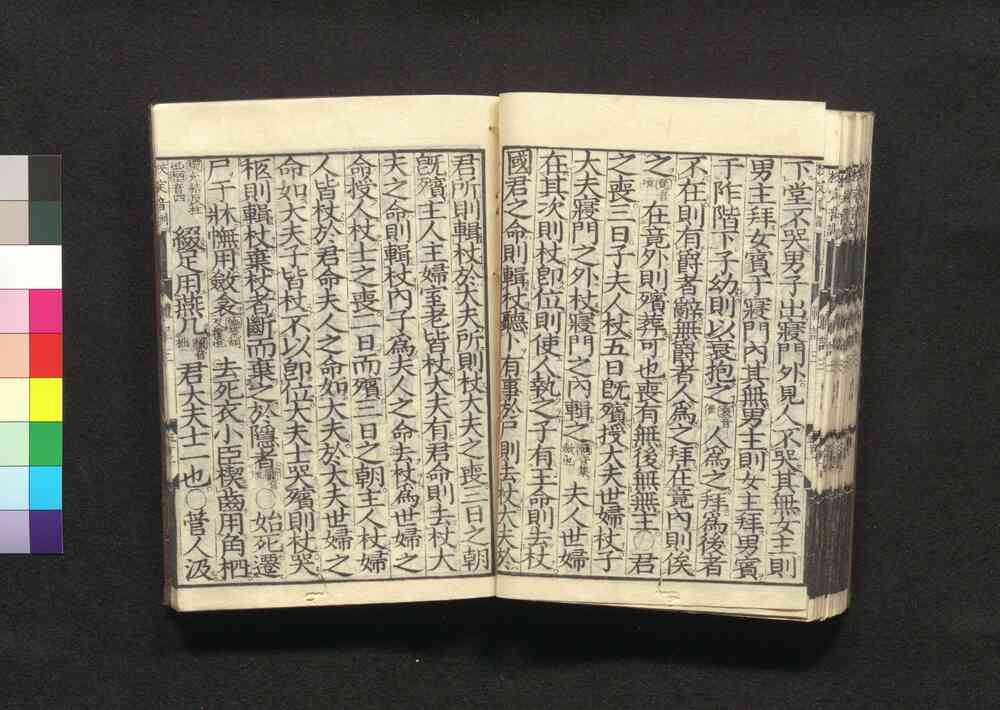 下堂不哭男子出寢門外見人不哭其無女主則
男主拜女賓于寢門內其無男主則女主拜男賓
于阼階下子幼則以衰抱之人為之拜為後者
不在則有爵者辭無爵者人為之拜在竟內則俟
之在竟外則殯葬可也喪有無後無無主○君
之喪三日子夫人杖五日既殯授大夫世婦杖子
大夫寢門之外杖寢門之內輯之夫人世婦
在其次則杖即位則使人執之子有王命則去杖
國君之命則輯杖聽卜有事於尸則去杖大夫於
君所則輯杖於大夫所則杖大夫之喪三日之朝
既殯主人主婦室老皆杖大夫有君命則去杖大
夫之命則輯杖內子為夫人之命去杖為世婦之
命授人杖士之喪二日而殯三日之朝主人杖婦
人皆杖於君命夫人之命如大夫於大夫世婦之
命如大夫子皆杖不以即位大夫士哭殯則杖哭
柩則輯杖棄杖者斷而棄之於隱者○始死遷
尸于牀幠用斂衾去死衣小臣楔齒用角柶
綴足用燕几君大夫士一也○管人汲